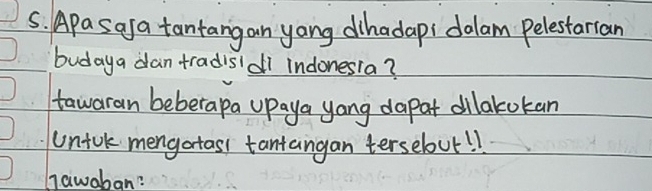 5. Apa saja tantangan yang dihadapi dalam pelestarian
budaya dan tradisi di indonesia?
tawaran beberapa upaya yang dapat dilakukan
untuk mengatasi tantangan tersebut!!
Jawaban: